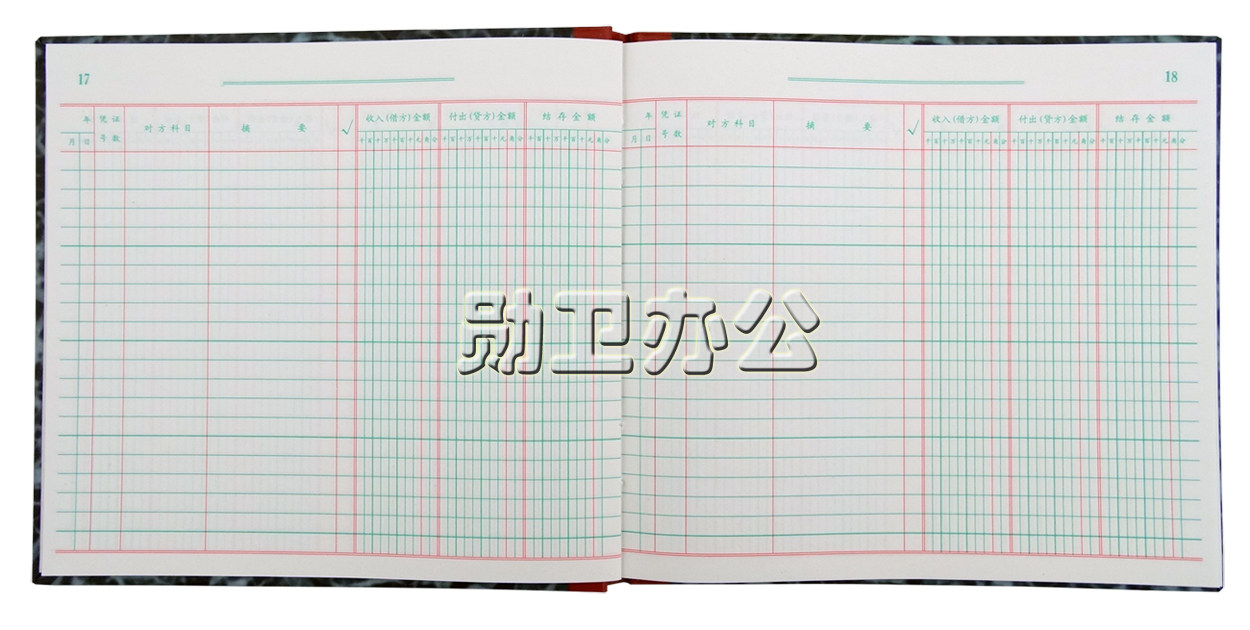 17
年 凭证 对方科目 摘 要 √ 收入(借方)金额 付出(贷方)金额 结存金额
月 日 号数 千百十万千百十元角分 千百十万千百十元角分 千百十万千百十元角分
18
年 凭证 对方科目 摘 要 √ 收入(借方)金额 付出(贷方)金额 结存金额
月 日 号数 千百十万千百十元角分 千百十万千百十元角分 千百十万千百十元角分
勋卫办公